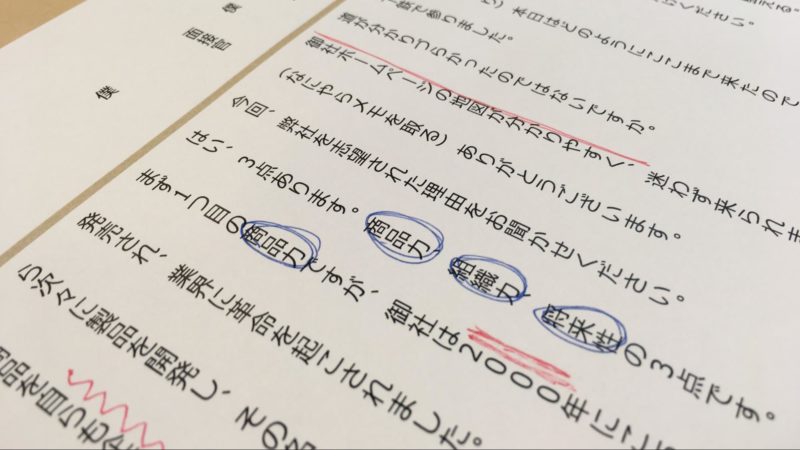 えください。
本日はどのようにここまで来たので
で参りました。
道が分かりづらかったのではないですか。
僕 御社ホームページの地図が分かりやすく、迷わず来られま
面接官 (なにやらメモを取る) ありがとうございます。
今回、弊社を志望された理由をお聞かせください。
僕 はい、3点あります。商品力、組織力、将来性の3点です。
まず1つ目の商品力ですが、御社は2000年にこ
発売され、業界に革命を起こされました。
ら次々に製品を開発し、その名
商品を自らも